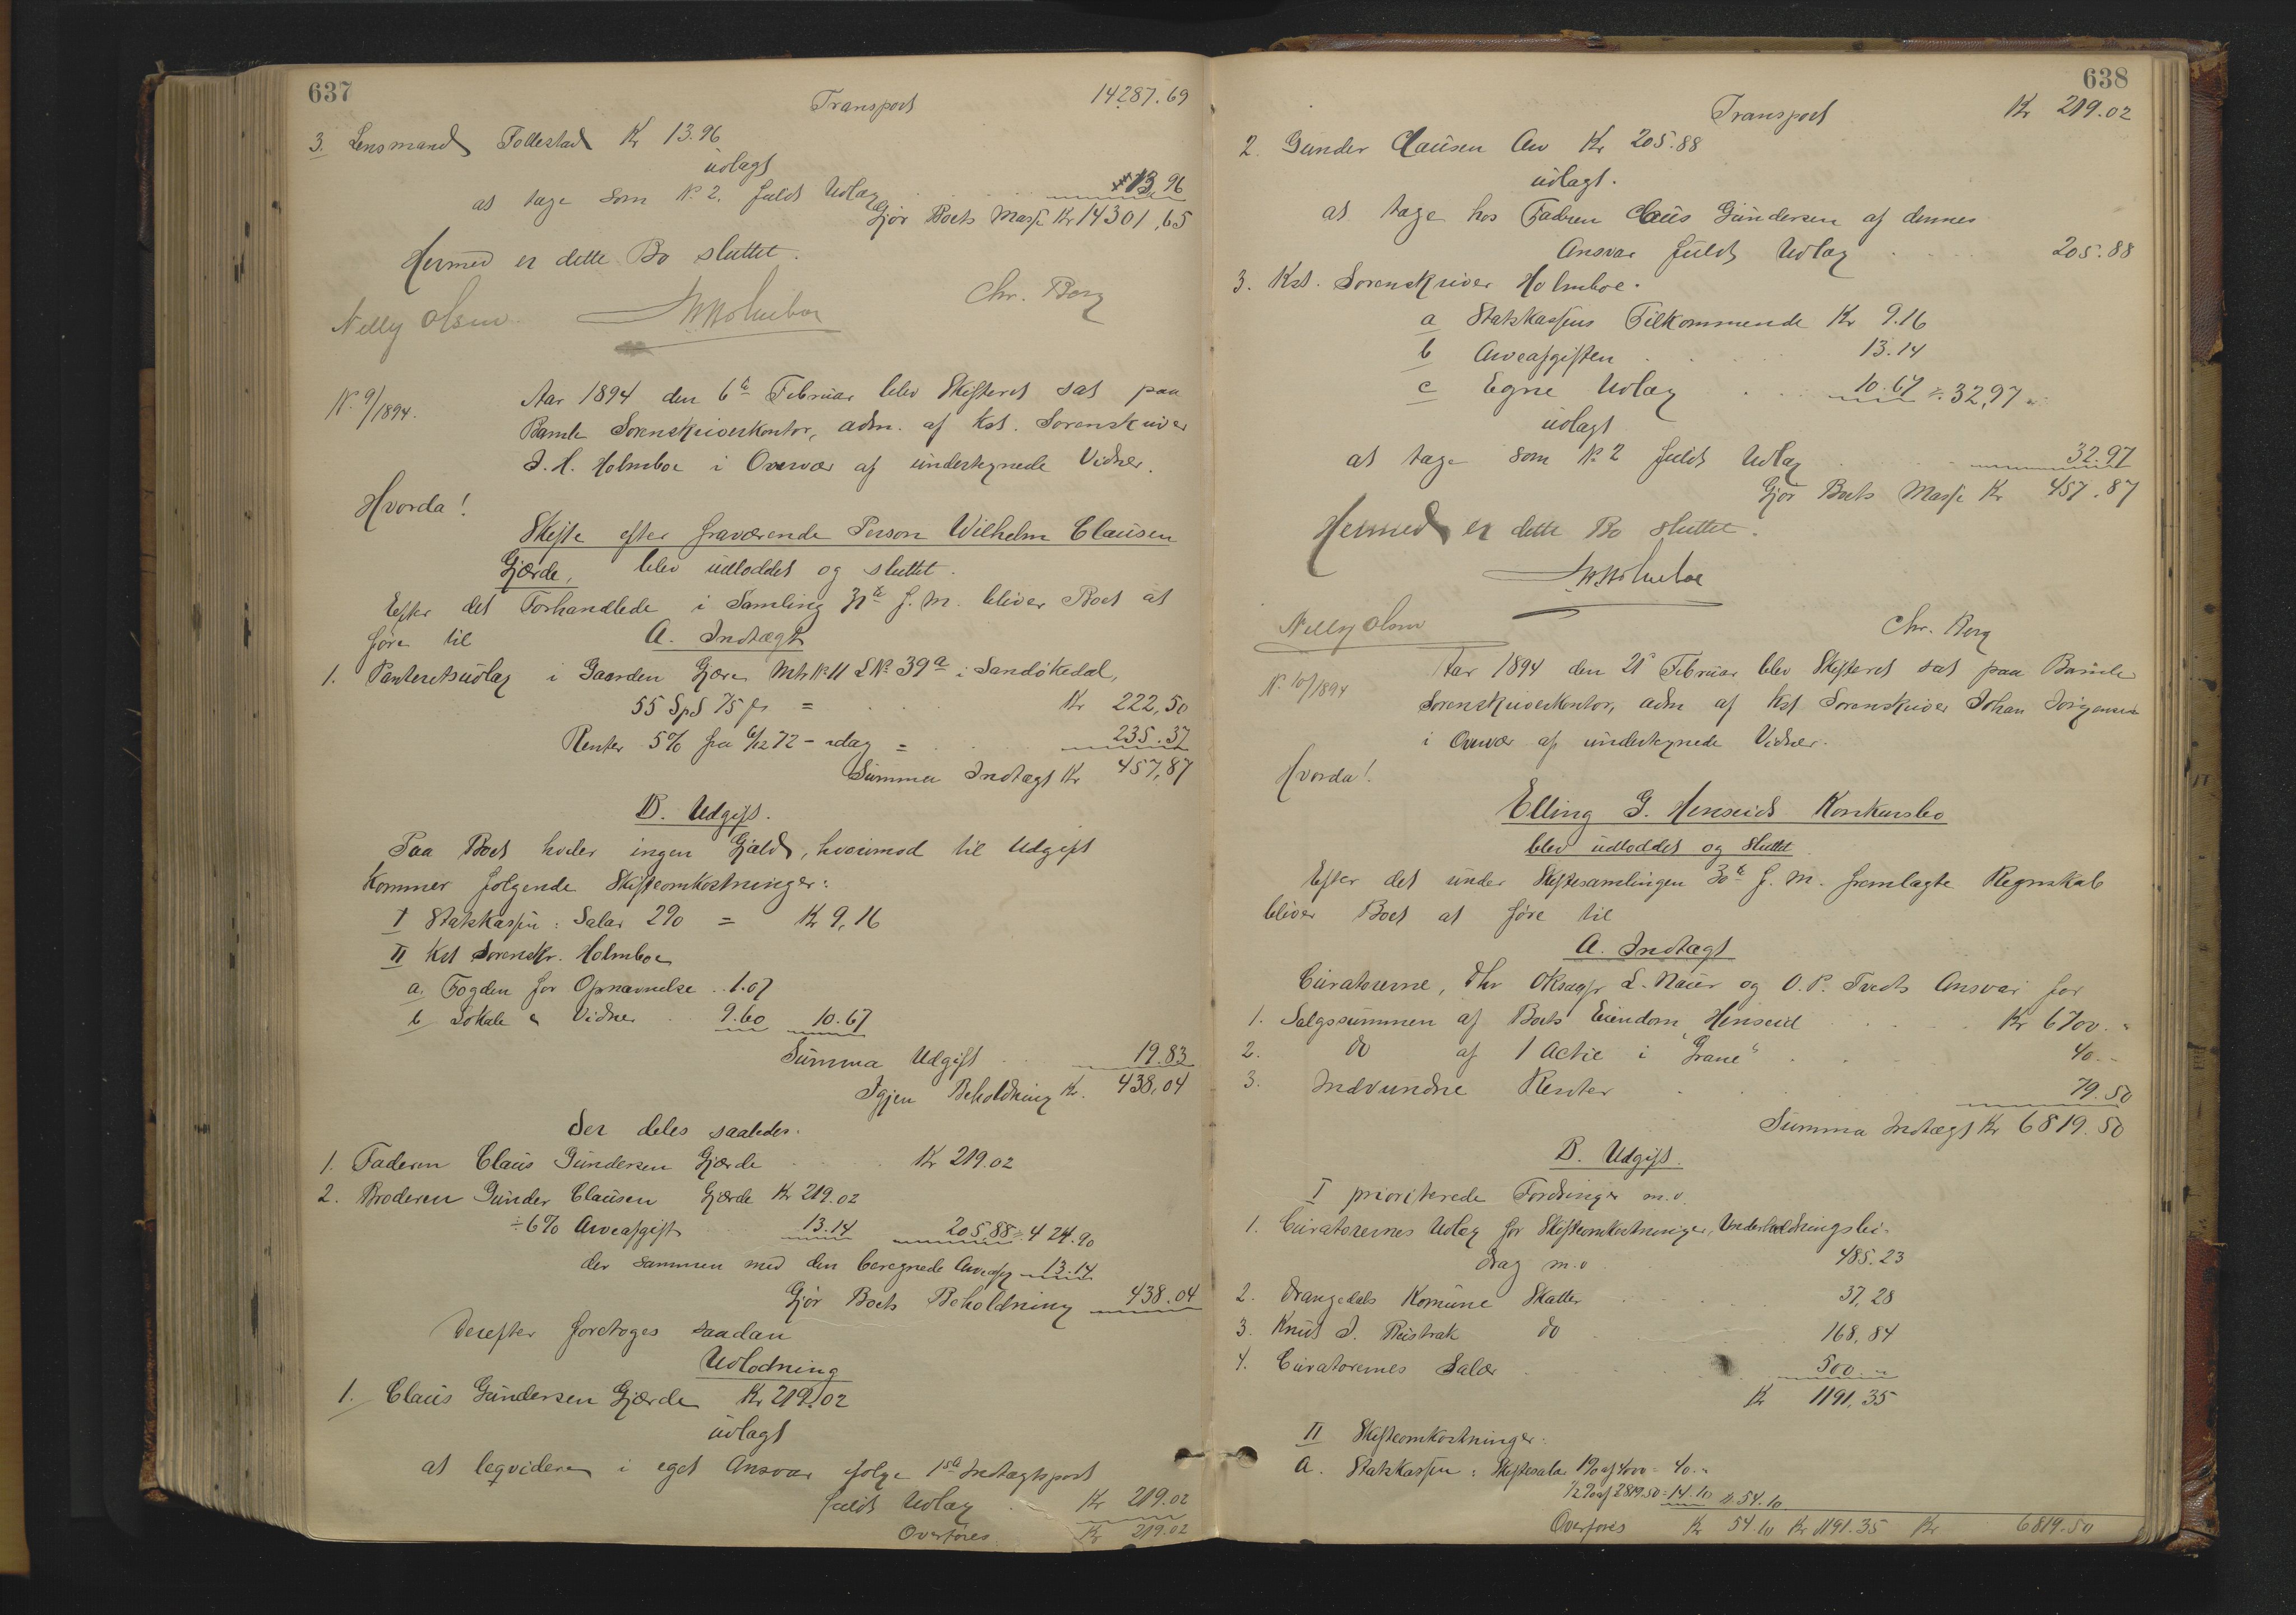 637
Transport 14287.69
3. Lensmand Follestad Kr 13.96
udlagt
at tage som No 2. fuldt Udlæg 13,96
Gjør Boets Masse Kr 14301,65
Hermed er dette Bo sluttet.
Nelly Olsen Holmboe Chr. Berg
No 9/1894. Aar 1894 den 6te Februar blev Skifteret sat paa
Bamle Sorenskriverkontor, adm. af Kst. Sorenskriver
J. H. Holmboe i Overvær af undertegnede Vidner.
Hvorda!
Skifte efter fraværende Person Wilhelm Clausen
Gjærde, blev udloddet og sluttet.
Efter det Forhandlede i Samling 31te f. M. bliver Boet at
føre til A. Indtægt
1. Panteretsudlæg i Gaarden Gjære Mtr No 11 LNo 39a i Sandøkedal,
55 Spd 75 ps = Kr 222,50
Renter 5% fra 6/12 72 - idag = 235.37
Summa Indtægt Kr 457,87
B. Udgift.
Paa Boet hviler ingen Gjæld, hvorimod til Udgift
kommer følgende Skifteomkostninger:
I Statskassen: Salær 2% = Kr 9,16
II Kst Sorenskr. Holmboe
a. Fogden for Opnævnelse .. 1.07
b Lokale & Vidner 9.60 10.67
Summa Udgift 19.83
Igjen Beholdning Kr. 438,04
der deles saaledes.
1. Faderen Claus Gundersen Gjærde Kr 219.02
2. Broderen Gunder Clausen Gjærde Kr 219.02
÷ 6% Arveafgift 13.14 205,88 = 424.90
der sammen med den beregnede Arveafg 13.14
Gjør Boets Beholdning 438.04
Derefter foretoges saadan
Udlodning
1. Claus Gundersen Gjærde Kr 219.02
udlagt
at leqvidere i eget Ansvar ifølge 1ste Indtægtspost
fuldt Udlæg Kr 219.02
Overføres Kr 219.02
638
Transport Kr 219.02
2. Gunder Clausen Arv Kr 205.88
udlagt.
at tage hos Faderen Claus Gundersen af dennes
Ansvar fuldt Udlæg 205.88
3. Kst. Sorenskriver Holmboe.
a Statskassens Tilkommende Kr 9.16
b Arveafgiften 13.14
c Egne Udlæg 10.67 = 32,97
udlagt
at tage som No 2 fuldt Udlæg 32.97
Gjør Boets Masse Kr 457.87
Hermed er dette Bo sluttet.
Holmboe
Nelly Olsen Chr. Berg
No 10/1894 Aar 1894 den 21 Februar blev Skifteret sat paa Bamle
Sorenskriverkontor, adm af Kst Sorenskriver Johan Jørgensen
i Overvær af undertegnede Vidner.
Hvorda!
Elling G. Henseids Konkursbo
blev udloddet og sluttet
Efter det under Skiftesamlingen 30te f. M. fremlagte Regnskab
bliver Boet at føre til
A. Indtægt
Curatorerne, Dhr Oksagf L. Nauer og O. P. Tvedts Ansvar for
1. Salgssummen af Boets Eiendom Henseid Kr 6700.-
2. do af 1 Actie i "Grane" 40.-
3. Indvundne Renter 79.50
Summa Indtægt Kr 6819.50
B. Udgift.
I prioriterede Fordringer m.v.
1. Curatorernes Udlæg for Skifteomkostninger, Underholdningsbi-
drag m.v 485.23
2. Drangedals Komune Skatter 37,28
3. Knut J. Reistrak do 168,84
4. Curatorernes Salær 500.-
Kr 1191,35
II Skifteomkostninger.
A. Statskassen: Skiftesalær 1% af 4000 = 40.-
1/2 % af 2819.50 = 14.10 Kr 54.10
Overføres Kr 54.10 Kr 1191.35 Kr 6819.50